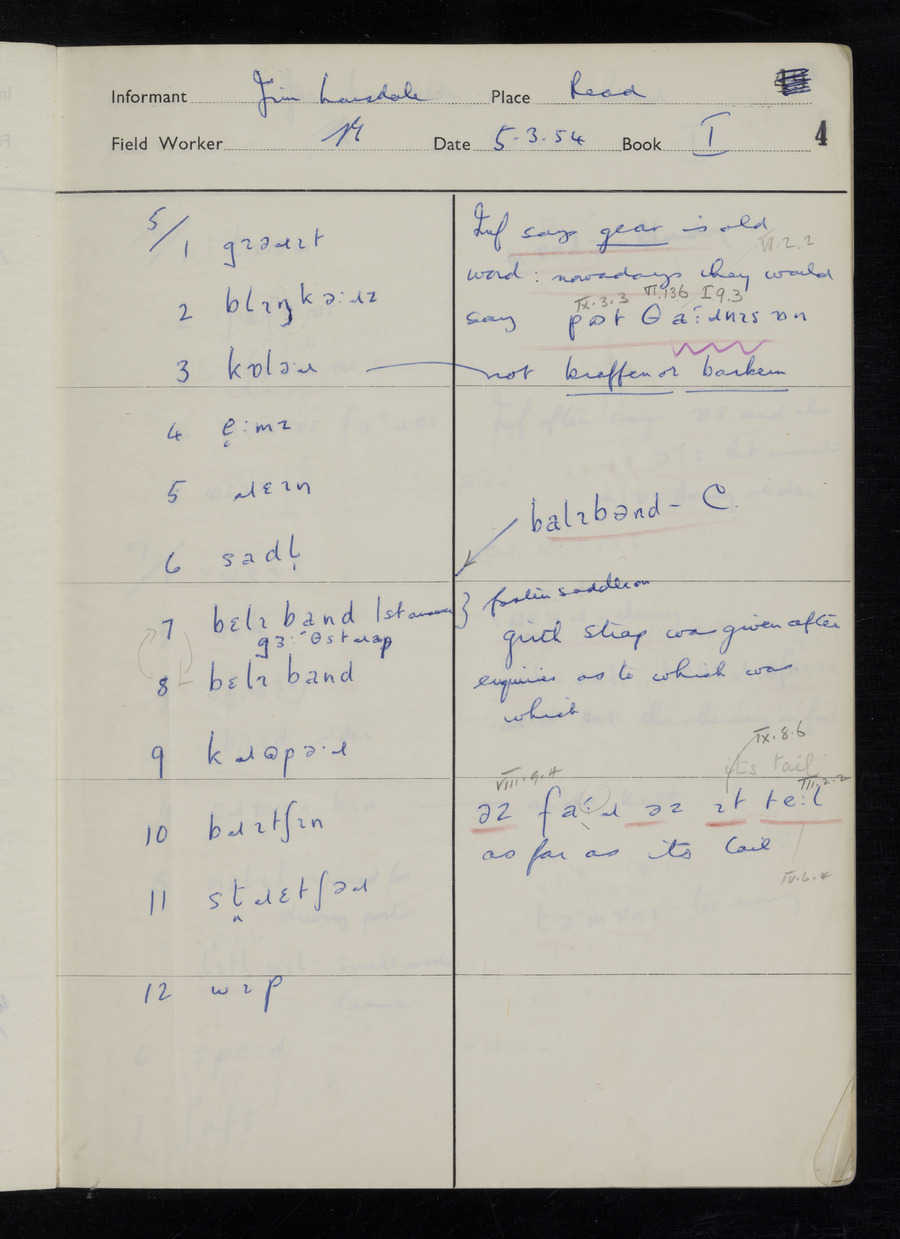 Informant Jim Lonsdale Place Read
Field Worker Date 5·3·54 Book I 4
5/1 gɹəɪt
2 blɪŋkəːɹz
3 kɒləɹ
4 ẹːmz
5 ɹɛɪn
6 sadl̩
7 bɛlɪ band 1st answer
gɜːθstɹap
8 bɛlɪ band
9 kɹʊpəˑɹ
10 bɹɪtʃɪn
11 st̪ɹɛtʃəɹ
12 wɪp
Inf says gear is old
VI.2.2
word: nowadays they would
IX.3.3 VI.136 I.9.3
say pʊt θ aːɹnɪs ɒn
not braffen or barkem
balɪband - C
} fasten saddle on
girth strap was given after
enquiries as to which was
which
IX.8.6
its tail
VIII.9.4 III.2.2
əz faːɹ əz ɪt teːl
as far as its tail
IV.6.4